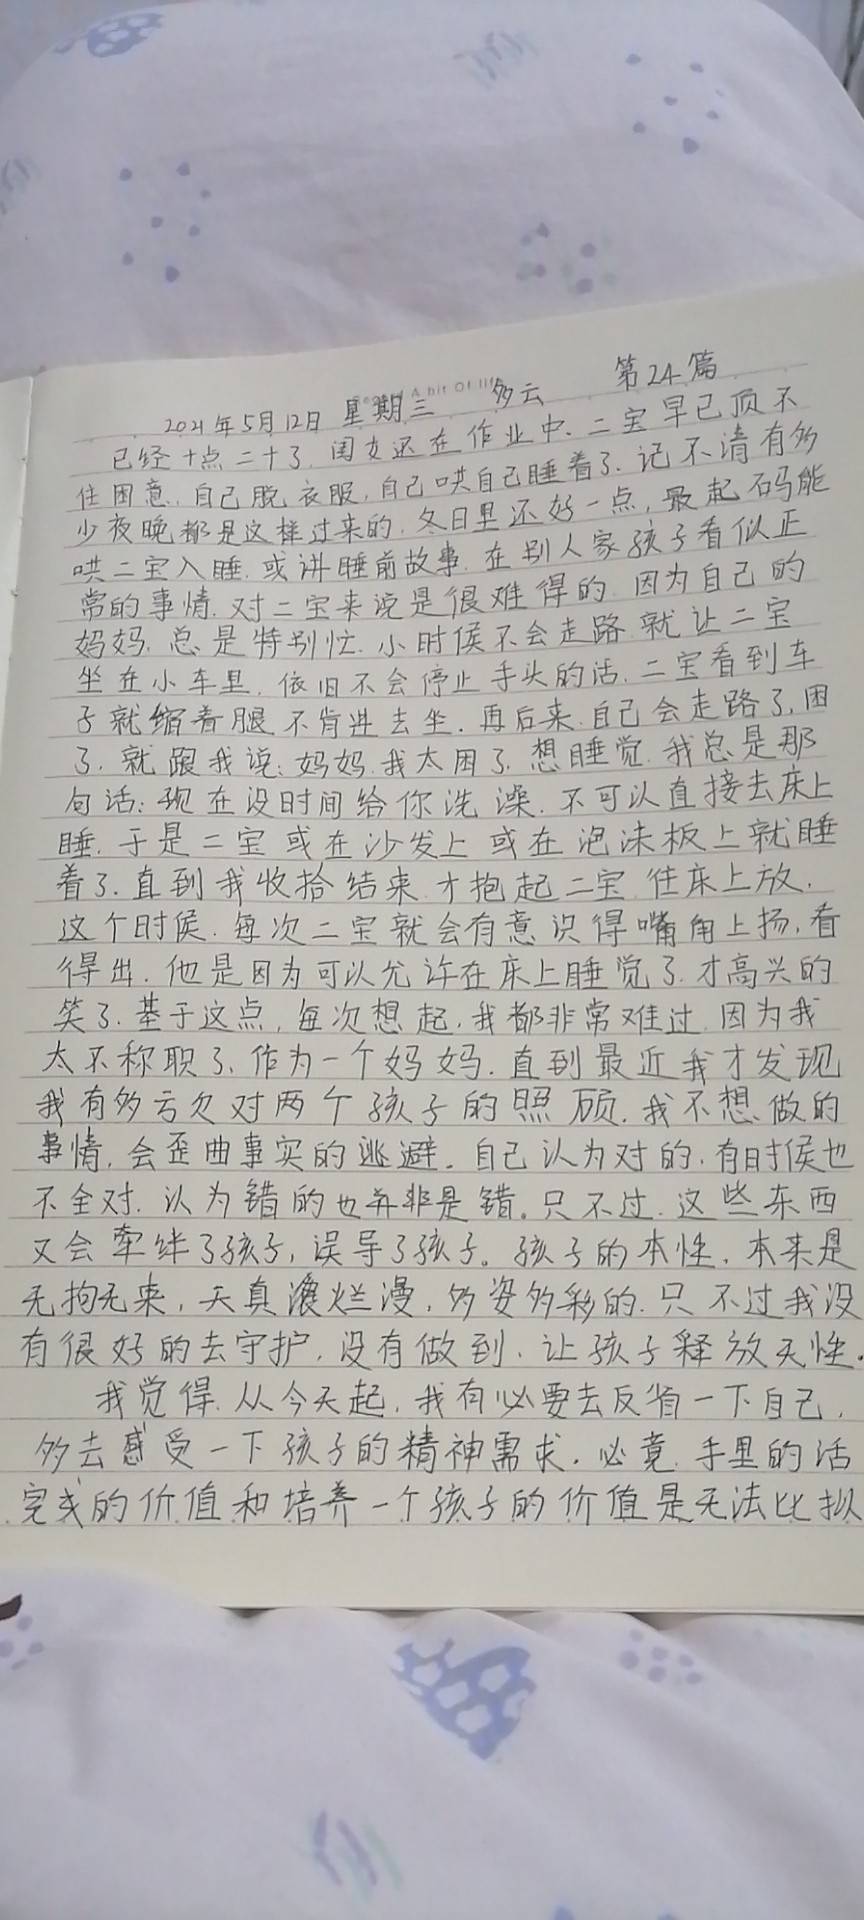 A bit Of li
2021年5月12日 星期三 多云 第24篇
已经十点二十了.闺女还在作业中.二宝早已顶不
住困意.自己脱衣服,自己哄自己睡着了.记不清有多
少夜晚都是这样过来的.冬日里还好一点,最起码能
哄二宝入睡.或讲睡前故事.在别人家孩子看似正
常的事情.对二宝来说是很难得的.因为自己的
妈妈.总是特别忙.小时候不会走路就让二宝
坐在小车里.依旧不会停止手头的活.二宝看到车
子就缩着腿不肯进去坐.再后来.自己会走路了,困
了.就跟我说:妈妈.我太困了.想睡觉.我总是那
句话:现在没时间给你洗澡.不可以直接去床上
睡.于是二宝或在沙发上或在泡沫板上就睡
着了.直到我收拾结束.才抱起二宝.往床上放.
这个时候.每次二宝就会有意识得嘴角上扬.看
得出.他是因为可以允许在床上睡觉了.才高兴的
笑了.基于这点,每次想起.我都非常难过.因为我
太不称职了.作为一个妈妈.直到最近我才发现
我有多亏欠对两个孩子的照顾.我不想做的
事情.会歪曲事实的逃避。自己认为对的.有时候也
不全对.认为错的也并非是错。只不过.这些东西
又会牵绊了孩子,误导了孩子。孩子的本性.本来是
无拘无束,天真浪烂漫,多姿多彩的.只不过我没
有很好的去守护.没有做到.让孩子释放天性.
我觉得.从今天起.我有必要去反省一下自己.
多去感受一下孩子的精神需求.必竟.手里的活
完成的价值和培养一个孩子的价值是无法比拟